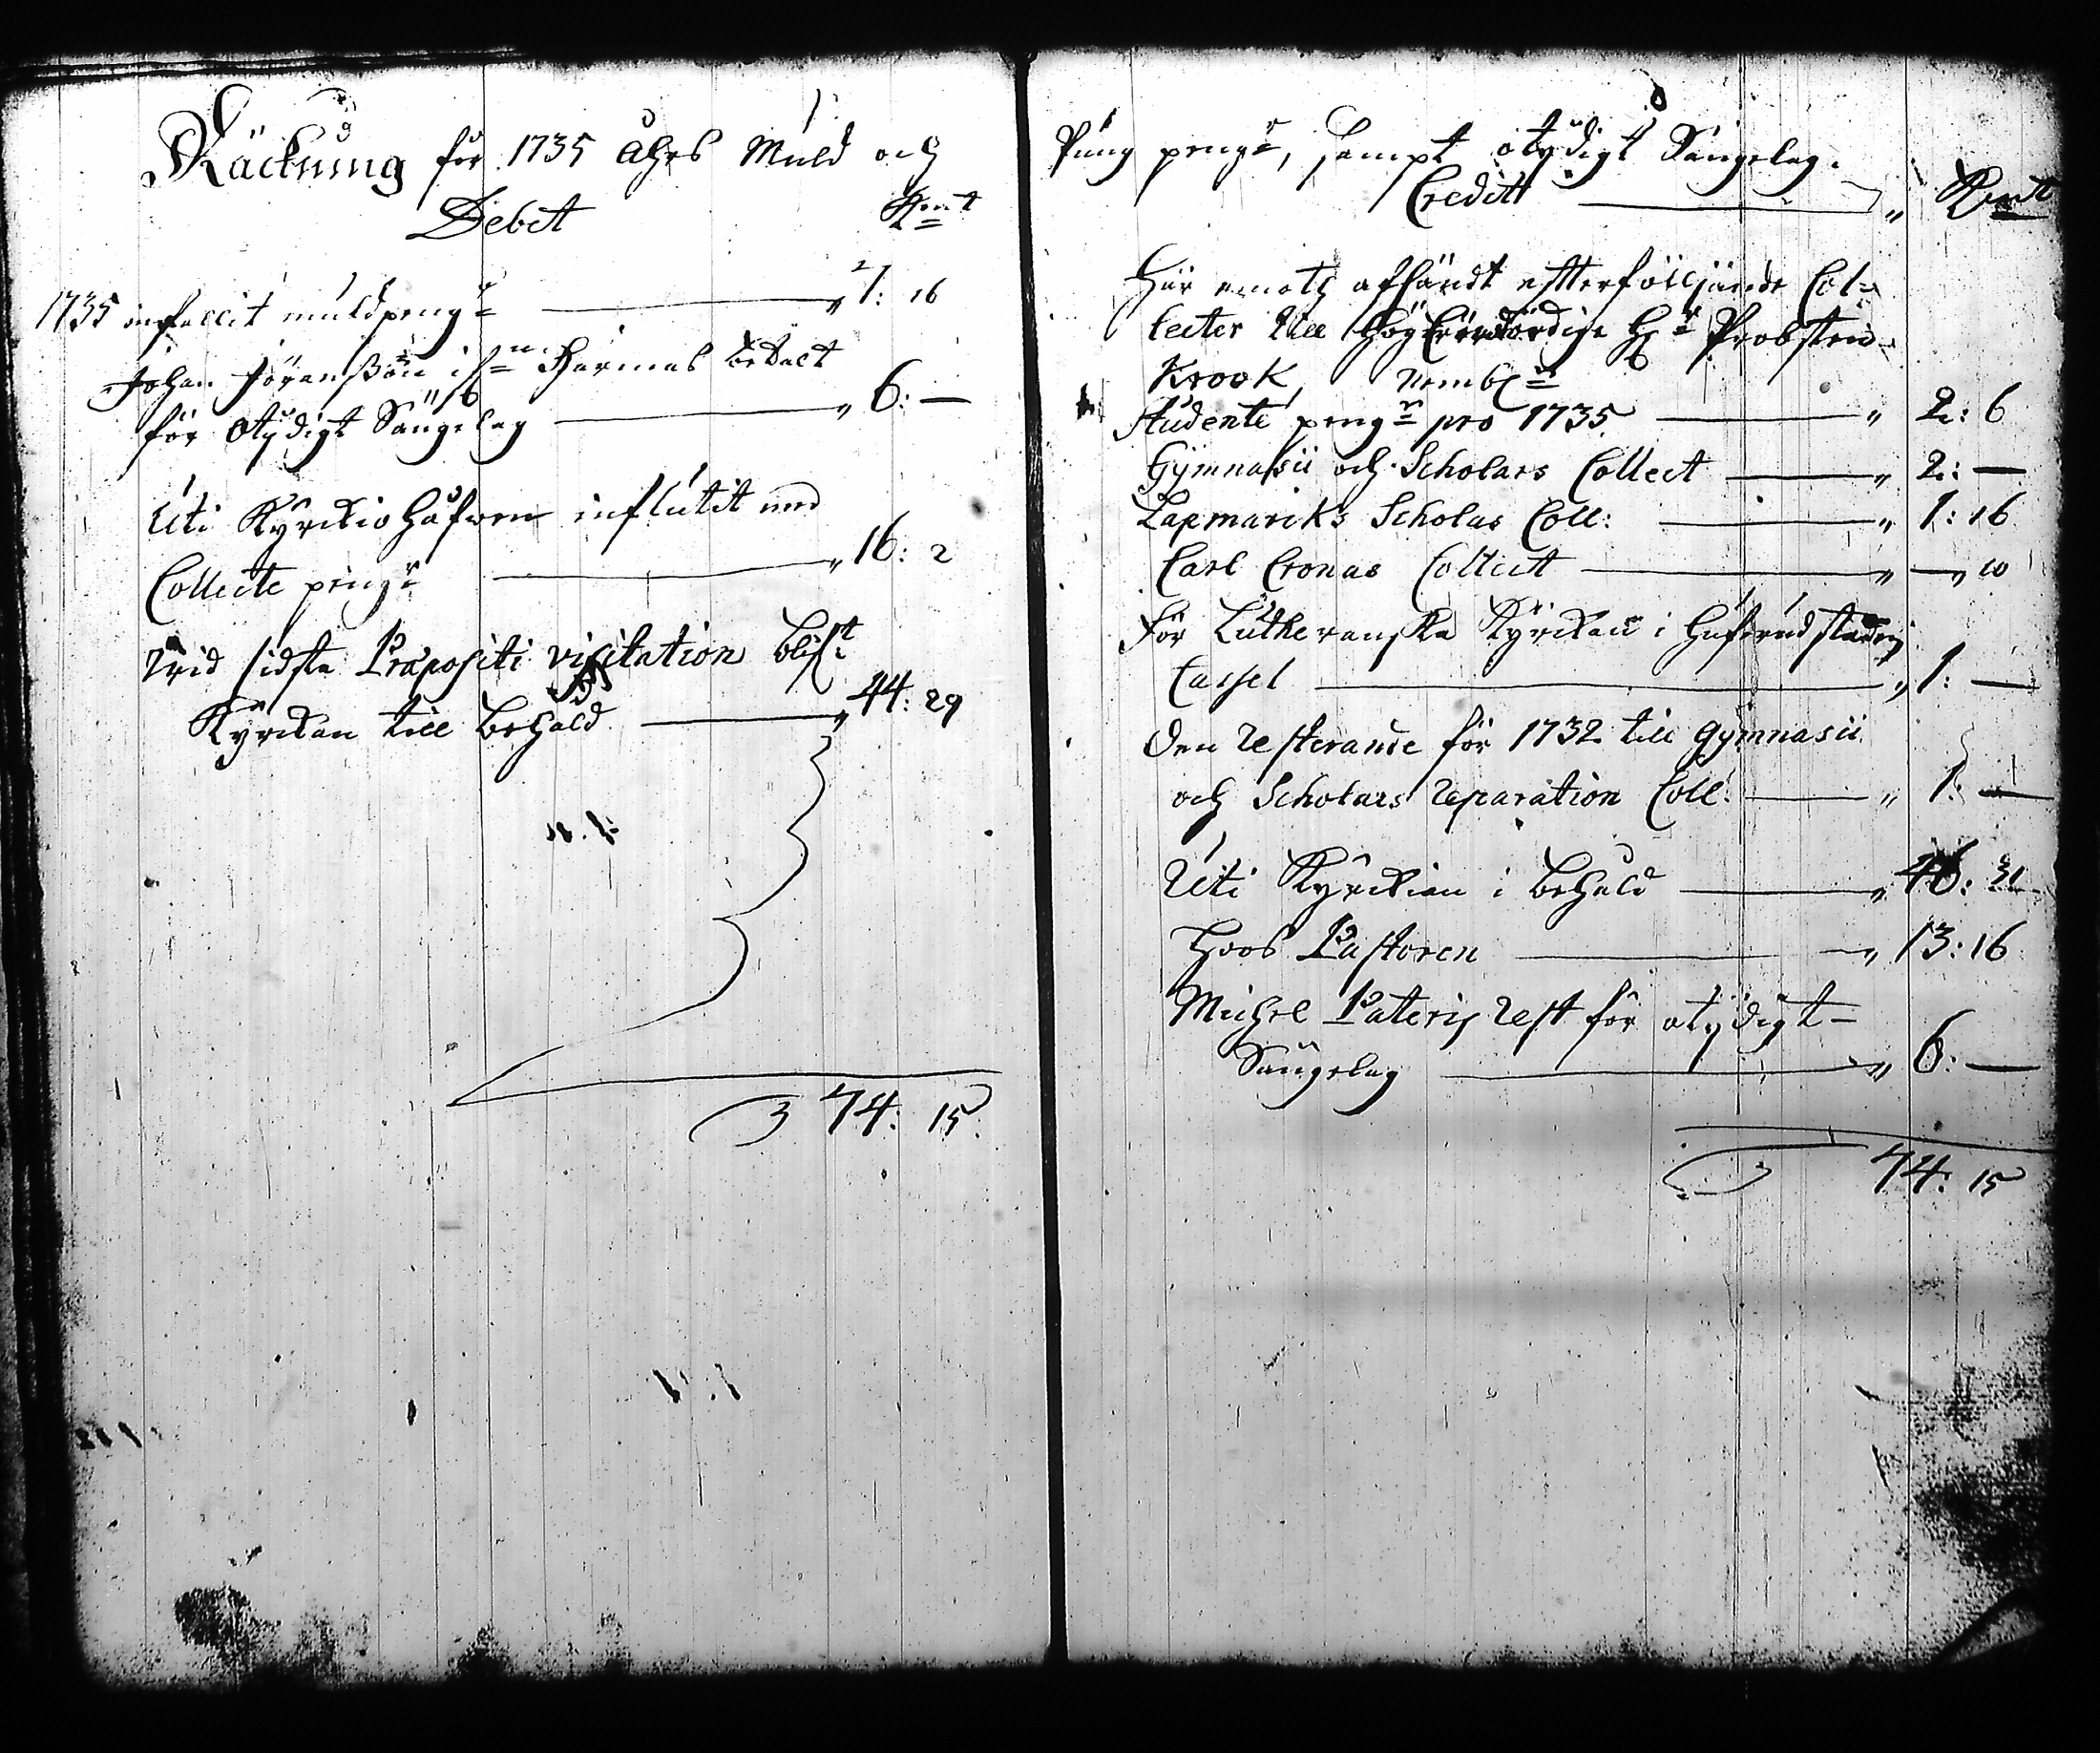 Räckning för 1735 åhrs Muld och
Debet Kmt
1735 infallit muldpengr 7: 16
Johan Jöransson betalt
för otÿdigt Sängelag 6: —
Uti Kÿrckio håfwen influtit med
Collecte pengr 16: 2
Wid sidsta Præpositi visitation blef
Kÿrckan till behåld 44: 29
74: 15
Pung pengr, sampt otÿdigt Sängelag.
Creditt Kmt
Här emoth afsändt efterfölljande Col=
lecter till HögEhrwördige Hr Probsten
Krook, Nembl
Studente pengr pro 1735 2: 6
Gÿmnasii och Scholars Collect 2: —
Lapmariks Scholas Coll: 1: 16
Carl Cronas Collectt — 10
För Lutheranska Kÿrckan i hufwudstaden
Cassel 1: —
Den resterande för 1732 till Gÿmnasii
och Scholars reparation Coll: 1: —
Uti Kÿrckian i behåld 46: 31
Hoos Pastoren 13: 16
Michel rest för otÿdigt
Sängelag 6: —
74: 15